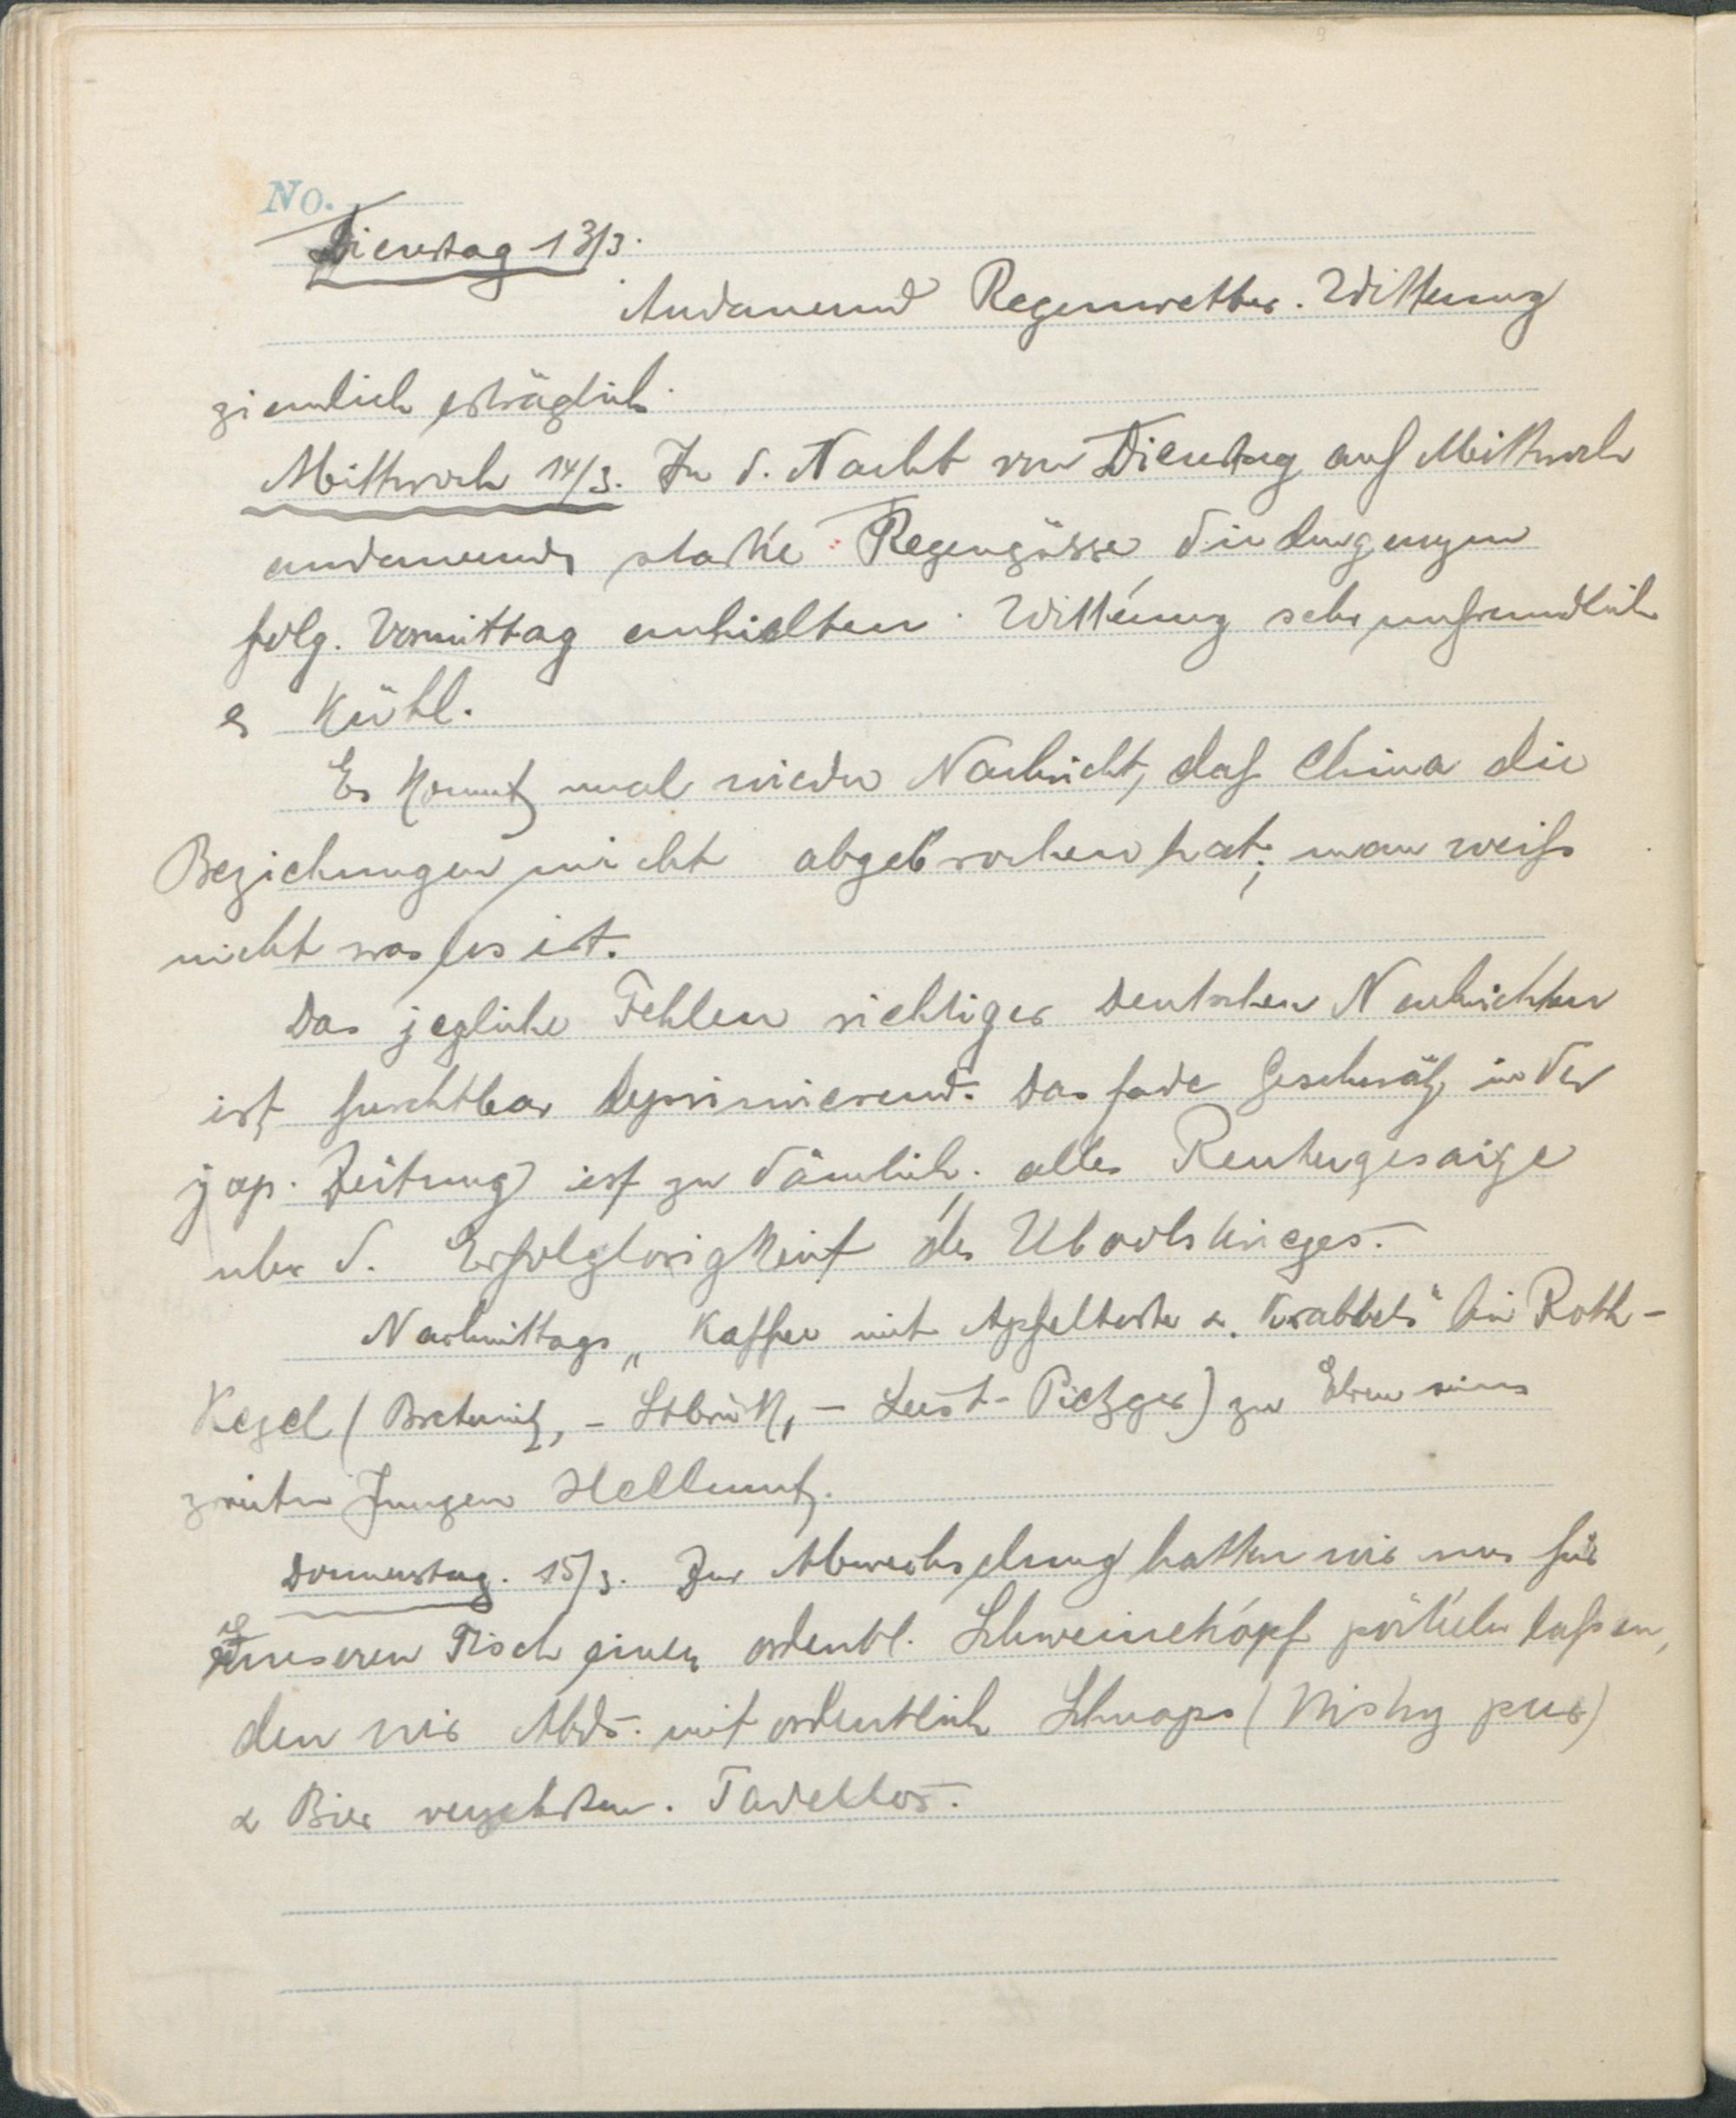 No.
Dienstag 13/3.
Andauernd Regenwetter. Witterung
ziemlich erträglich.
Mittwoch 14/3. In d. Nacht von Dienstag auf Mittwoch
andauernd starke Regengüsse die den ganzen
folg. Vormittag anhielten. Witterung sehr unfreundlich
& kühl.
Es kommt mal wieder Nachricht, daß China die
Beziehungen nicht abgebrochen hat; man weiß
nicht was los ist.
Das jegliche Fehlen richtiger Deutschen Nachrichten
ist furchtbar deprimierend. Das fade Geschwätz in der
jap. Zeitung ist zu dämlich. alles
über d. Erfolglosigkeit des Ubootskrieges.
Nachmittags „Kaffee mit Apfeltorte & Krabbels" bei Roth-
Kegel ( - Lust - Pietzger) zu Ehren seines
zweiten Jungen Hellmut.
Donnerstag. 15/3. Zur Abwechselung hatten wir uns für
unseren Tisch einen ordentl. Schweinekopf pökeln laßen,
den wir Abds. mit ordentlich Schnaps (Wisky pur)
& Bier verzehrten. Tadellos.